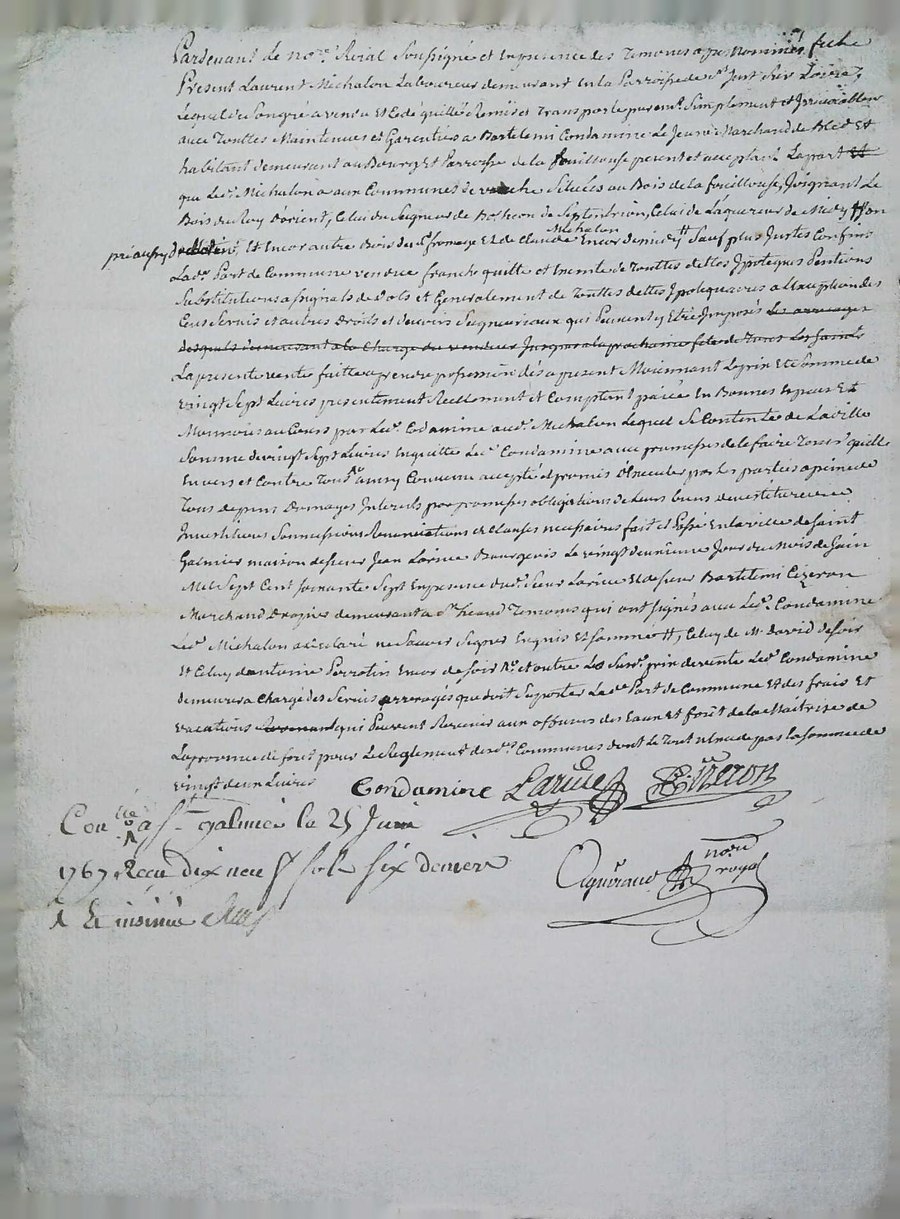 Pardevant le no.re Roial Soussigné et En presence des Temoins apres nommés fut
Present Laurent Michalon Laboureur demeurant En la Parroisse de St Just Sur Loire,
Lequel de Son gré a vendu Et Cédé quitté Remis et Transporté purem.t Simplement et Irrevocablem
avec Touttes Maintenues et Garenties a Bartelemi Condamine Le Jeune Marchand de Bled Et
habitant demeurant au Bourg Et Parroisse de la fouillouse present et acceptant La part Et
que Led. Michalon a aux Communes de Situées au Bois de la fouillouse, Joignant Le
Bois du Roy d'orient, Celui du Seigneur de Septentrion, Celui de L'aquereur de Midy
Michalon
Et Encor autre Bois de Sr fromage Et de Claude Encor de midy Sauf plus Justes Confins
Lad.e Part de Commune vendue franche quitte et Exemte de Touttes dettes Ipoteques Pentions
Substitutions assignats de dots et Generalement de Touttes dettes Ipotequaires a L'Exception des
Cens Servis et autres Droits et devoirs Seigneuriaux qui Peuvent y Etre Imposés Les arrerages
desquels demeurant a la Charge du vendeur Jusques a la prochaine fete de Tous Les Saints
La presente vente faitte a prendre possession des a present Moiennant Le prix Et Somme de
vingt Sept Livres presentement Reellement et Comptant paiée En Bonnes Especes Et
Monnoies au Cours par Led. Codamine aud. Michalon Lequel Se Contente de Laditte
Somme de vingt Sept Livres En quitte Led. Condamine avec promesses de le faire Tenir quitte
Envers et Contre Tous ainsy Convenu accepté et promis Observer par les parties a peine de
Tous depens Domages Interets par promesses obligations de Leurs biens
Investitures Sommissions Renonciations et Clauses necessaires fait et Passé En la ville de Saint
Galmier maison de Sieur Jean Larive Bourgeois Le vingt deuxième Jour du Mois de Juin
Mil Sept Cent Soixante Sept En presence dud. Sieur Larive Et de Sieur Bartelemi Cizeron
Marchand Drapier demeurant a St Temoins qui ont Signés avec Led. Condamine
Led. Michalon a declaré ne Savoir Signer Enquis Et Sommé, Celuy de Mr david de Soir
Et Celuy d'antoine Perrotin Encor de Soir Et outre Le Susd. prix de vente Led. Condamine
demeurera Chargé des Servis arreragés que doit Suporter Lad.e Part de Commune Et des frais Et
vacations qui Peuvent Revenir aux officiers des Eaux et forêt de la Maitrise de
La province de forêt pour Le Reglement desd. Communes dont Le Tout n'Excede pas la Somme de
vingt deux Livres
Condamine Larive Cizeron
Con.lé a St galmier le 25 Juin
1767 Recu dix neuf sols six deniers
no.re
royal